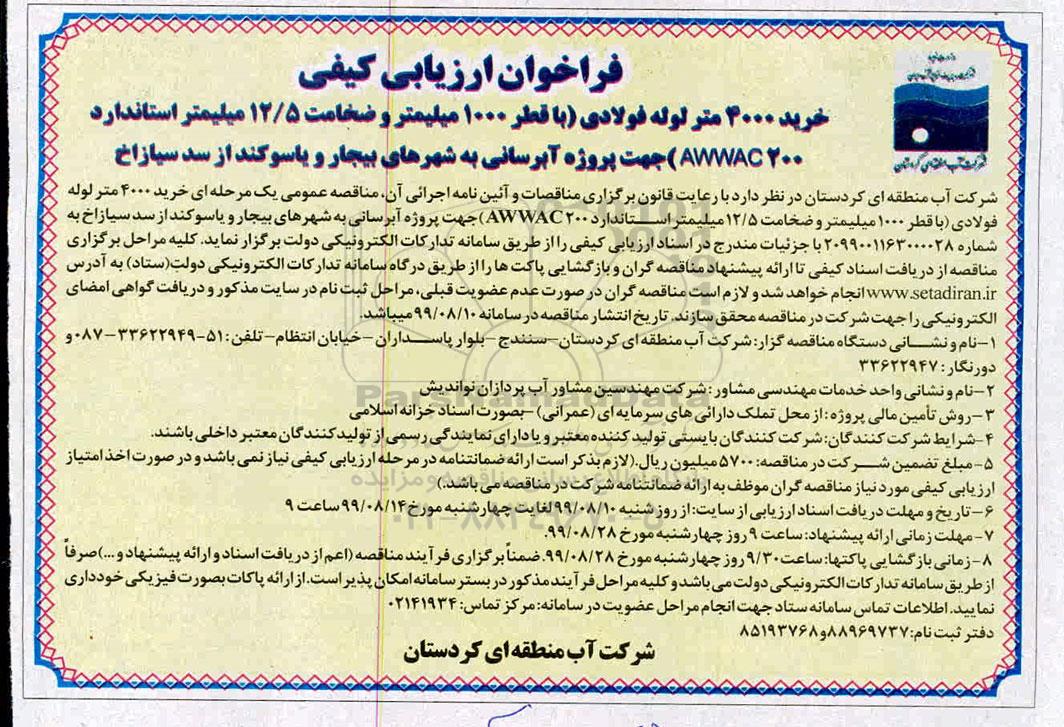 فراخوان ارزیابی کیفی
خرید ۴۰۰۰ متر لوله فولادی (با قطر ۱۰۰۰ میلیمتر و ضخامت ۱۲/۵ میلیمتر استاندارد
AWWAC ۲۰۰) جهت پروژه آبرسانی به شهرهای بیجار و یاسوکند از سد سیازاخ
شرکت آب منطقه ای کردستان
شرکت آب منطقه ای کردستان در نظر دارد با رعایت قانون برگزاری مناقصات و آئین نامه اجرائی آن، مناقصه عمومی یک مرحله ای خرید ۴۰۰۰ متر لوله
فولادی (با قطر ۱۰۰۰ میلیمتر و ضخامت ۱۲/۵ میلیمتر استاندارد AWWAC ۲۰۰) جهت پروژه آبرسانی به شهرهای بیجار و یاسوکند از سد سیازاخ به
شماره ۲۰۹۹۰۰۱۱۶۳۰۰۰۰۲۸ با جزئیات مندرج در اسناد ارزیابی کیفی را از طریق سامانه تدارکات الکترونیکی دولت برگزار نماید. کلیه مراحل برگزاری
مناقصه از دریافت اسناد کیفی تا ارائه پیشنهاد مناقصه گران و بازگشایی پاکت ها را از طریق درگاه سامانه تدارکات الکترونیکی دولت(ستاد) به آدرس
www.setadiran.ir انجام خواهد شد و لازم است مناقصه گران در صورت عدم عضویت قبلی، مراحل ثبت نام در سایت مذکور و دریافت گواهی امضای
الکترونیکی را جهت شرکت در مناقصه محقق سازند. تاریخ انتشار مناقصه در سامانه ۹۹/۰۸/۱۰ میباشد.
۱-نام و نشانی دستگاه مناقصه گزار: شرکت آب منطقه ای کردستان-سنندج-بلوار پاسداران-خیابان انتظام-تلفن: ۵۱-۳۳۶۲۲۹۴۹-۰۸۷ و
دورنگار: ۳۳۶۲۲۹۴۷
۲-نام و نشانی واحد خدمات مهندسی مشاور: شرکت مهندسین مشاور آب پردازان نواندیش
۳-روش تأمین مالی پروژه: از محل تملک دارائی های سرمایه ای (عمرانی) -بصورت اسناد خزانه اسلامی
۴-شرایط شرکت کنندگان: شرکت کنندگان بایستی تولید کننده معتبر و یا دارای نمایندگی رسمی از تولیدکنندگان معتبر داخلی باشند.
۵-مبلغ تضمین شرکت در مناقصه: ۵۷۰۰ میلیون ریال.(لازم بذکر است ارائه ضمانتنامه در مرحله ارزیابی کیفی نیاز نمی باشد و در صورت اخذ امتیاز
ارزیابی کیفی مورد نیاز مناقصه گران موظف به ارائه ضمانتنامه شرکت در مناقصه می باشد.)
۶-تاریخ و مهلت دریافت اسناد ارزیابی از سایت: از روز شنبه ۹۹/۰۸/۱۰ لغایت چهارشنبه مورخ ۹۹/۰۸/۱۴ ساعت ۹
۷-مهلت زمانی ارائه پیشنهاد: ساعت ۹ روز چهارشنبه مورخ ۹۹/۰۸/۲۸.
۸-زمانی بازگشایی پاکتها: ساعت ۹/۳۰ روز چهارشنبه مورخ ۹۹/۰۸/۲۸. ضمناً برگزاری فرآیند مناقصه (اعم از دریافت اسناد و ارائه پیشنهاد و...) صرفاً
از طریق سامانه تدارکات الکترونیکی دولت می باشد و کلیه مراحل فرآیند مذکور در بستر سامانه امکان پذیر است. از ارائه پاکات بصورت فیزیکی خودداری
نمایید. اطلاعات تماس سامانه ستاد جهت انجام مراحل عضویت در سامانه: مرکز تماس: ۰۲۱۴۱۹۳۴
دفتر ثبت نام: ۸۸۹۶۹۷۳۷ و ۸۵۱۹۳۷۶۸
شرکت آب منطقه ای کردستان